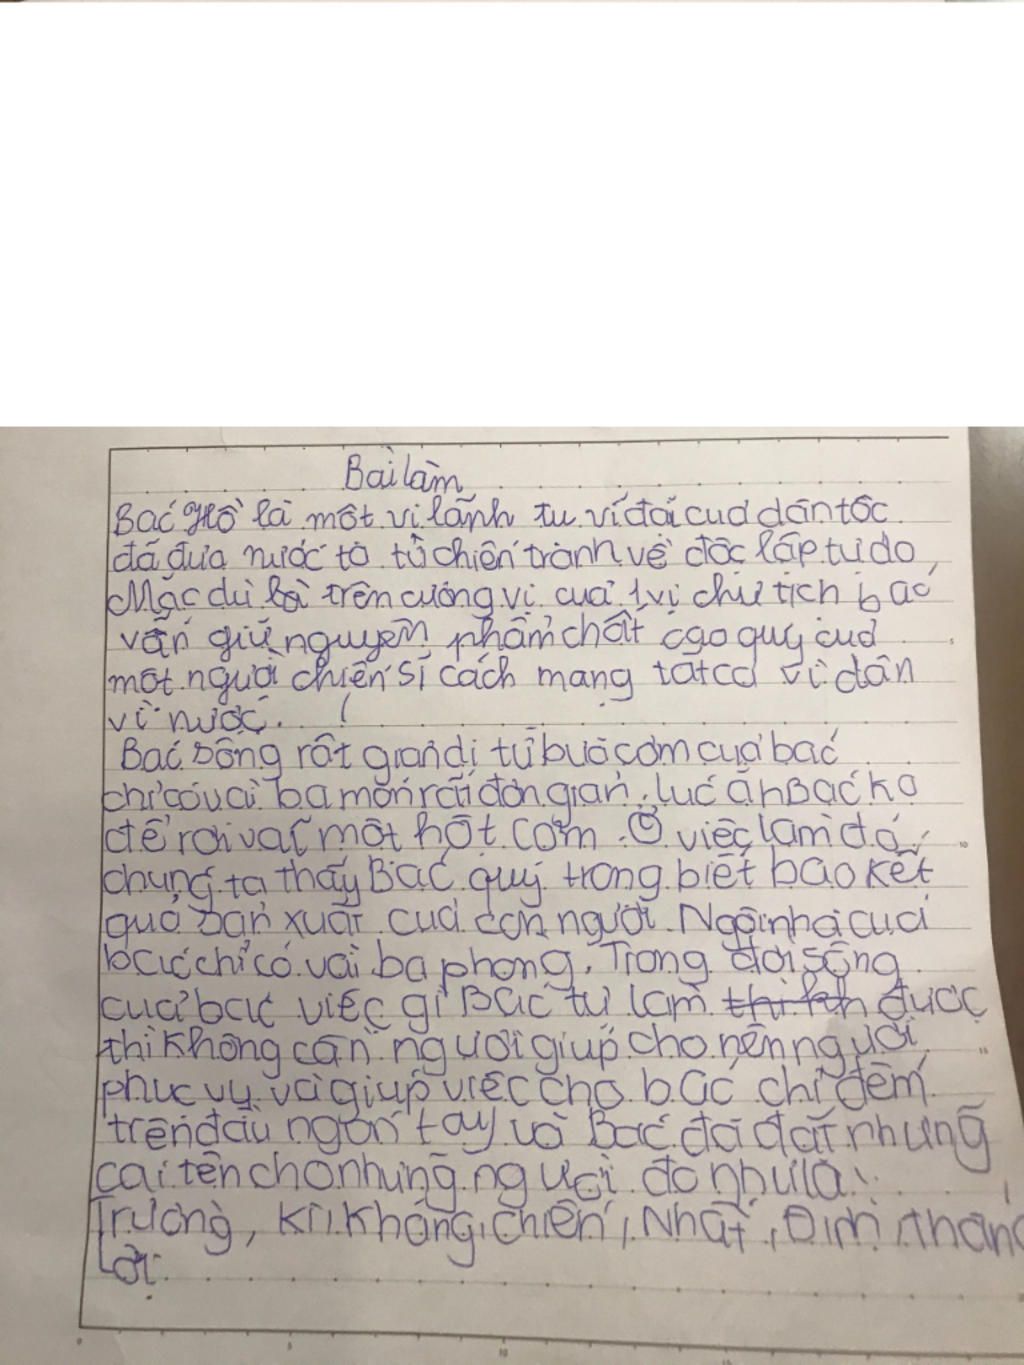 Bài làm
Bác Hồ là một vị lãnh tụ vĩ đại của dân tộc
đã đưa nước ta từ chiến tranh về độc lập tự do,
Mặc dù là trên cương vị của 1 vị chủ tịch bác
vẫn giữ nguyên phẩm chất cao quý của
một người chiến sĩ cách mạng tất cả vì dân
vì nước.
Bác sống rất giản dị từ bữa cơm của bác
chỉ có vài ba món rất đơn giản, lúc ăn Bác ko
để rơi vãi một hột cơm. Ở việc làm đó
chúng ta thấy Bác quý trọng biết bao kết
quả sản xuất của con người. Ngôi nhà của
bác chỉ có vài ba phòng. Trong đời sống
của bác việc gì Bác tự làm được
thì không cần người giúp cho nên người
phục vụ và giúp việc cho bác chỉ đếm
trên đầu ngón tay và Bác đã đặt những
cái tên cho những người đó như là:
Trường, Kì, Kháng, Chiến, Nhất, Định, thắng
Lợi.